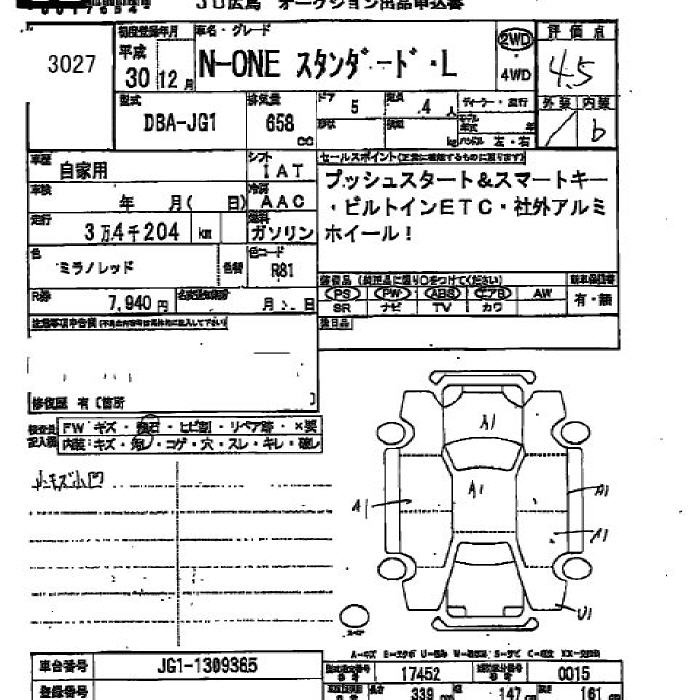 JU広島 オークション出品申込書
3027
初度登録年月
平成
30 12 月
車名・グレード
N-ONE スタンダード・L
2WD
4WD
評価点
4.5
外装 内装
b
型式
DBA-JG1
排気量
658
cc
ドア 5
定員 .4 人
ディーラー・並行
左・右
車歴
自家用
シフト
IAT
セールスポイント
プッシュスタート&スマートキー
・ビルトインETC・社外アルミ
ホイール!
車検
年 月( 日)
冷房
AAC
走行
3万4千204 km
燃料
ガソリン
色
ミラノレッド
色替
色コード
R81
R券
7,940 円
月 日
PS PW ABS エアB AW
SR ナビ TV カワ
有・無
後日品
修復歴 有(箇所 )
検査員
記入欄
FW キズ・飛石・ヒビ割・リペア跡・×要
内装:キズ・汚し・コゲ・穴・スレ・キレ・破し
小キズ小凹
A1
A1
A1
A1
A1
U1
車台番号
JG1-1309365
登録番号
17452
0015
339
147
161